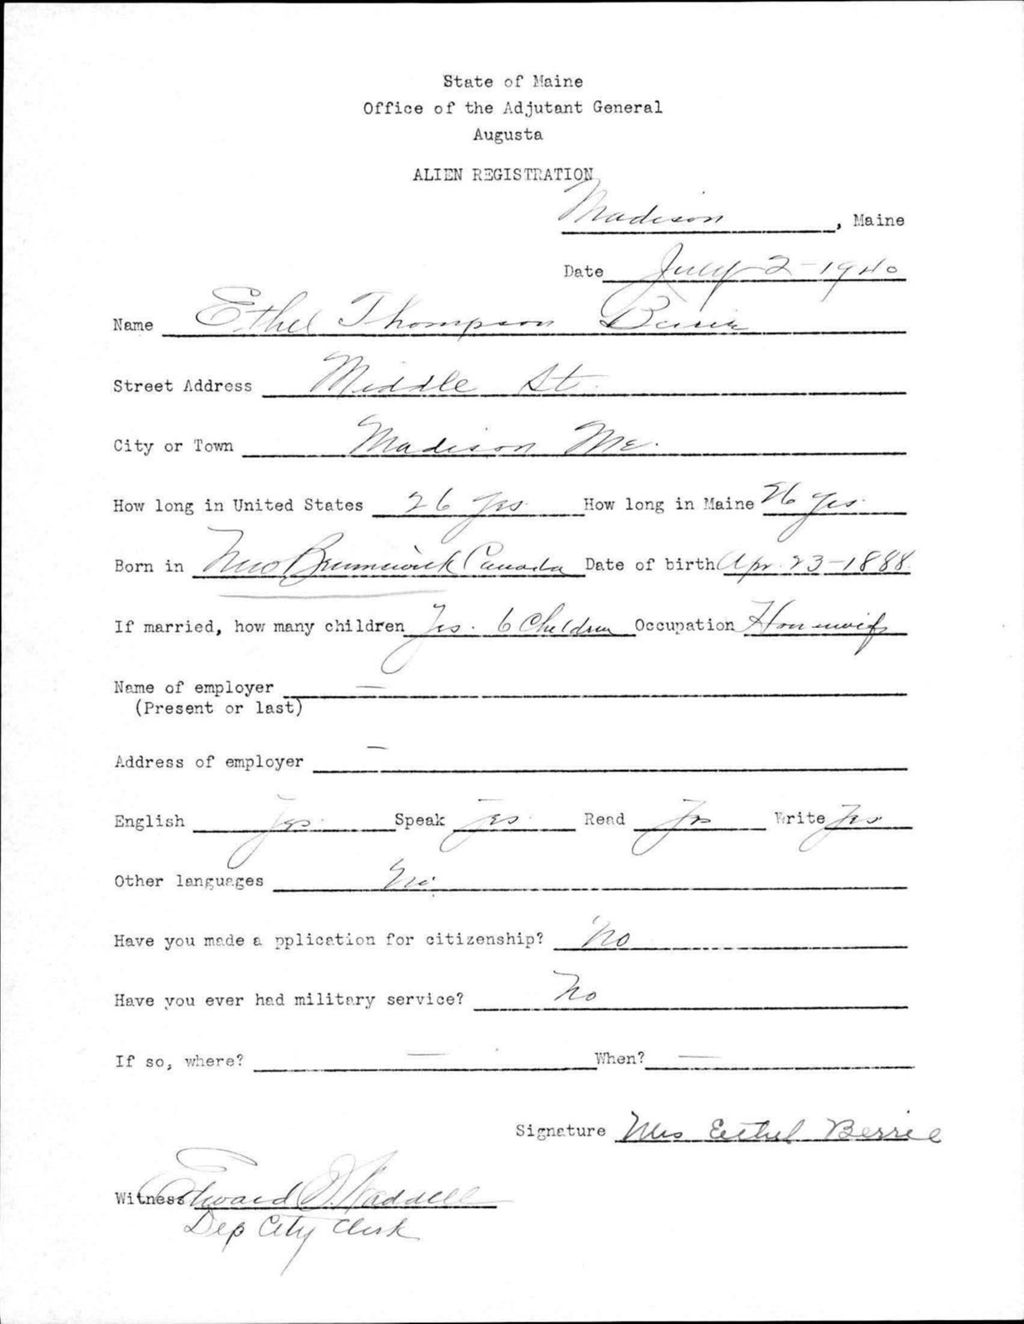 State of Maine
Office of the Adjutant General
Augusta
ALIEN REGISTRATION
Madison, Maine
Date July 2 - 1940
Name Ethel Thompson Berrie
Street Address Middle St.
City or Town Madison Me.
How long in United States 26 yrs. How long in Maine 26 yrs.
Born in New Brunswick Canada Date of birth Apr. 23-1888
If married, how many children Yes. 6 Children Occupation Housewife
Name of employer —
(Present or last)
Address of employer —
English Yes. Speak Yes. Read Yes Write Yes
Other languages No.
Have you made a pplication for citizenship? No
Have you ever had military service? No
If so, where? — When? —
Signature Mrs Eethel Berrie
Witness Edward Waddell
Dep City Clerk